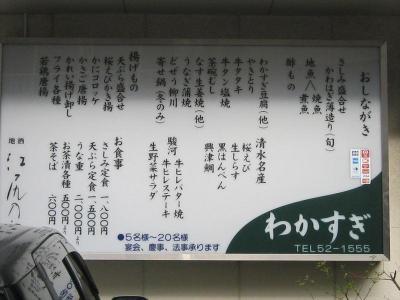 おしながき
さしみ盛合せ
かわはぎ薄造り(旬)
地魚 焼魚
煮魚
酢もの
わかすぎ豆腐(他)
やきとり
牛タタキ
牛タン塩焼
茶碗むし
なす生姜焼(他)
うなぎ蒲焼
どぜう柳川
寄せ鍋(冬のみ)
清水名産
桜えび
生しらす
黒はんぺん
興津鯛
駿河 牛ヒレバター焼
牛ヒレステーキ
生野菜サラダ
揚げもの
天ぷら盛合せ
桜えびかき揚
かにコロッケ
かさご唐揚
かれい揚げ卸し
フライ各種
若鶏唐揚
お食事
さしみ定食 一、八〇〇円
天ぷら定食 一、五〇〇円
うな重 二、〇〇〇円より
お茶漬各種 五〇〇円より
茶そば 六〇〇円
地酒
●5名様〜20名様
宴会、慶事、法事承ります
わかすぎ
TEL52-1555